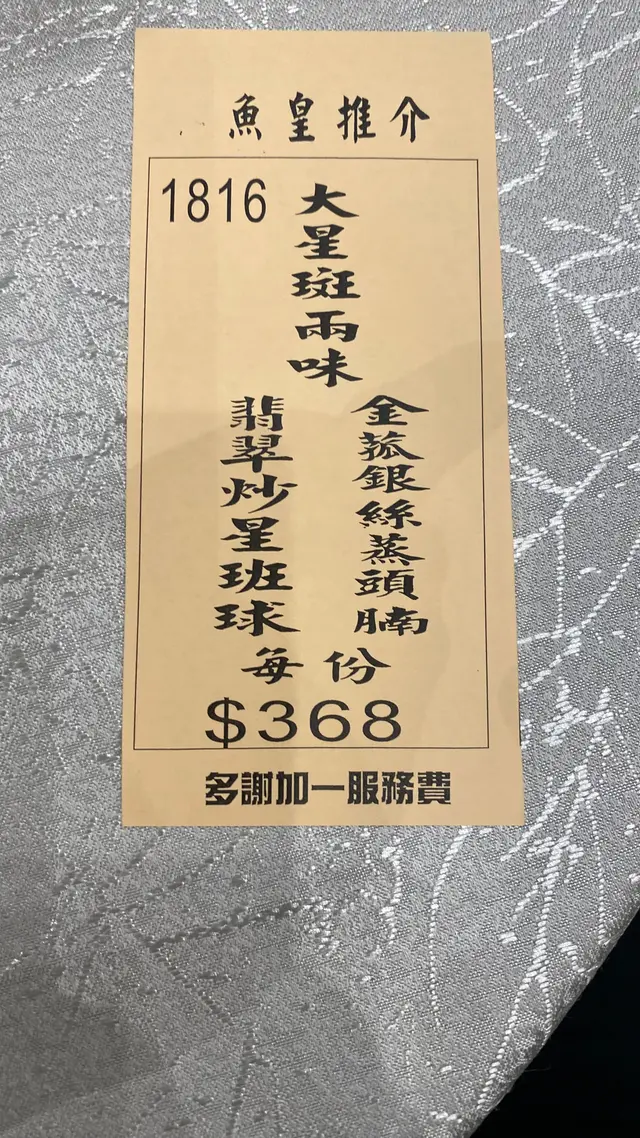 魚皇推介
1816
大星斑兩味
金菰銀絲蒸頭腩
翡翠炒星班球
每份
$368
多謝加一服務費